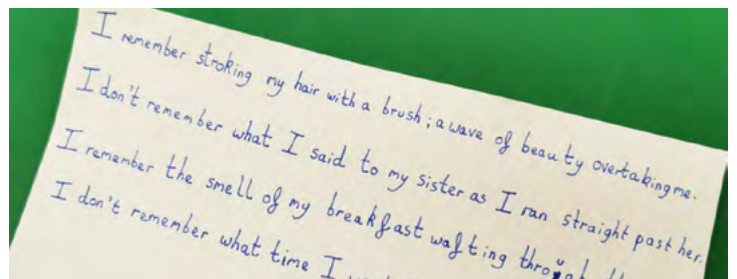 I remember stroking my hair with a brush; a wave of beauty overtaking me.
I don't remember what I said to my sister as I ran straight past her.
I remember the smell of my breakfast wafting
I don't remember what time I